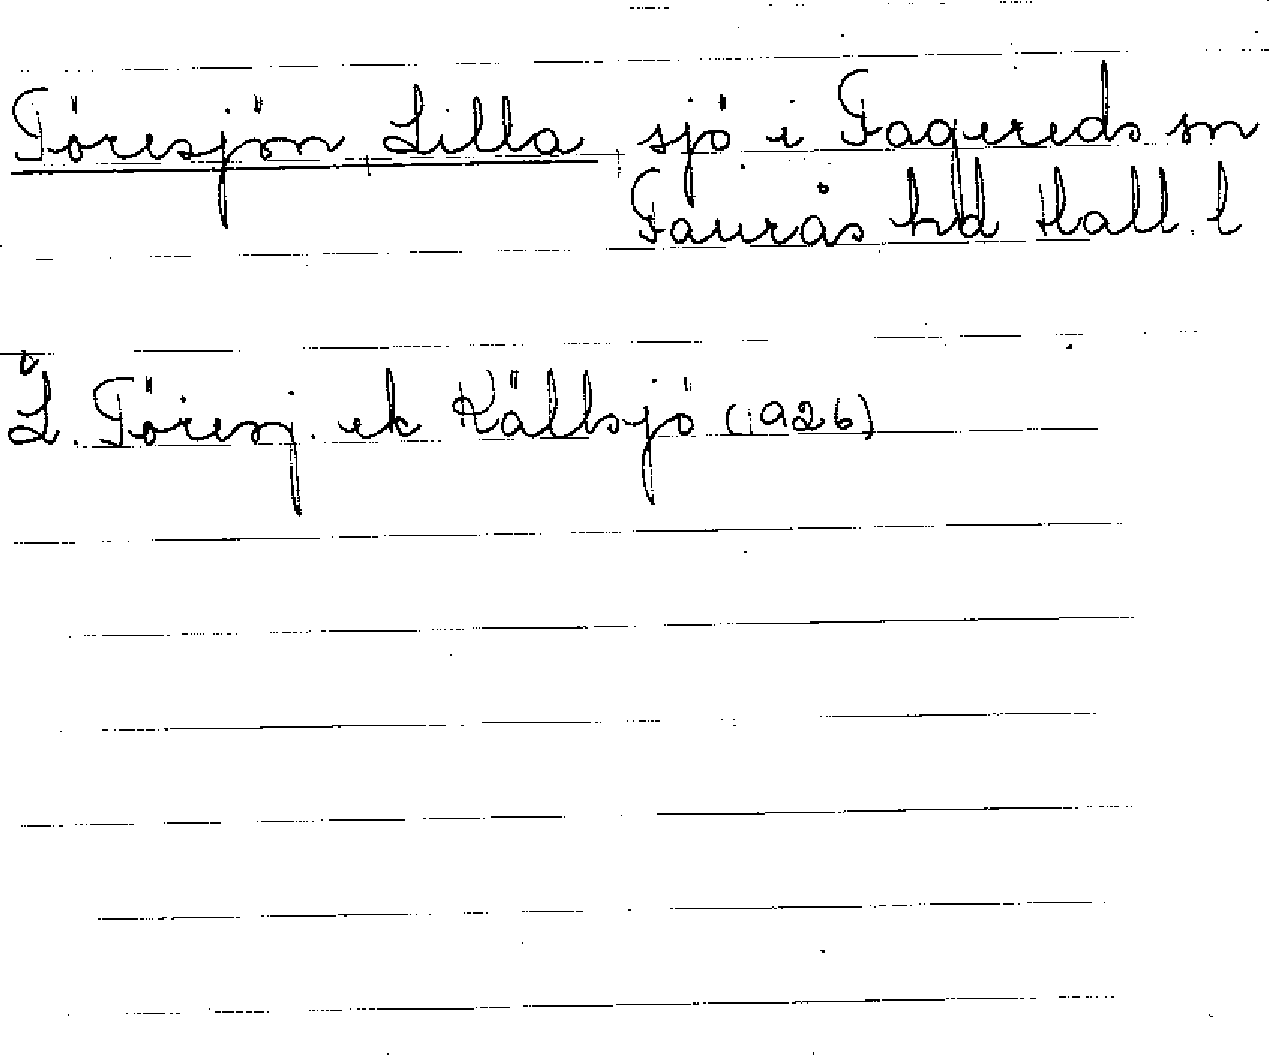 Töresjön, Lilla, sjö i Fagereds sn
Faurås hd Hall. l
L. Töresj. ek Källsjö (1926)